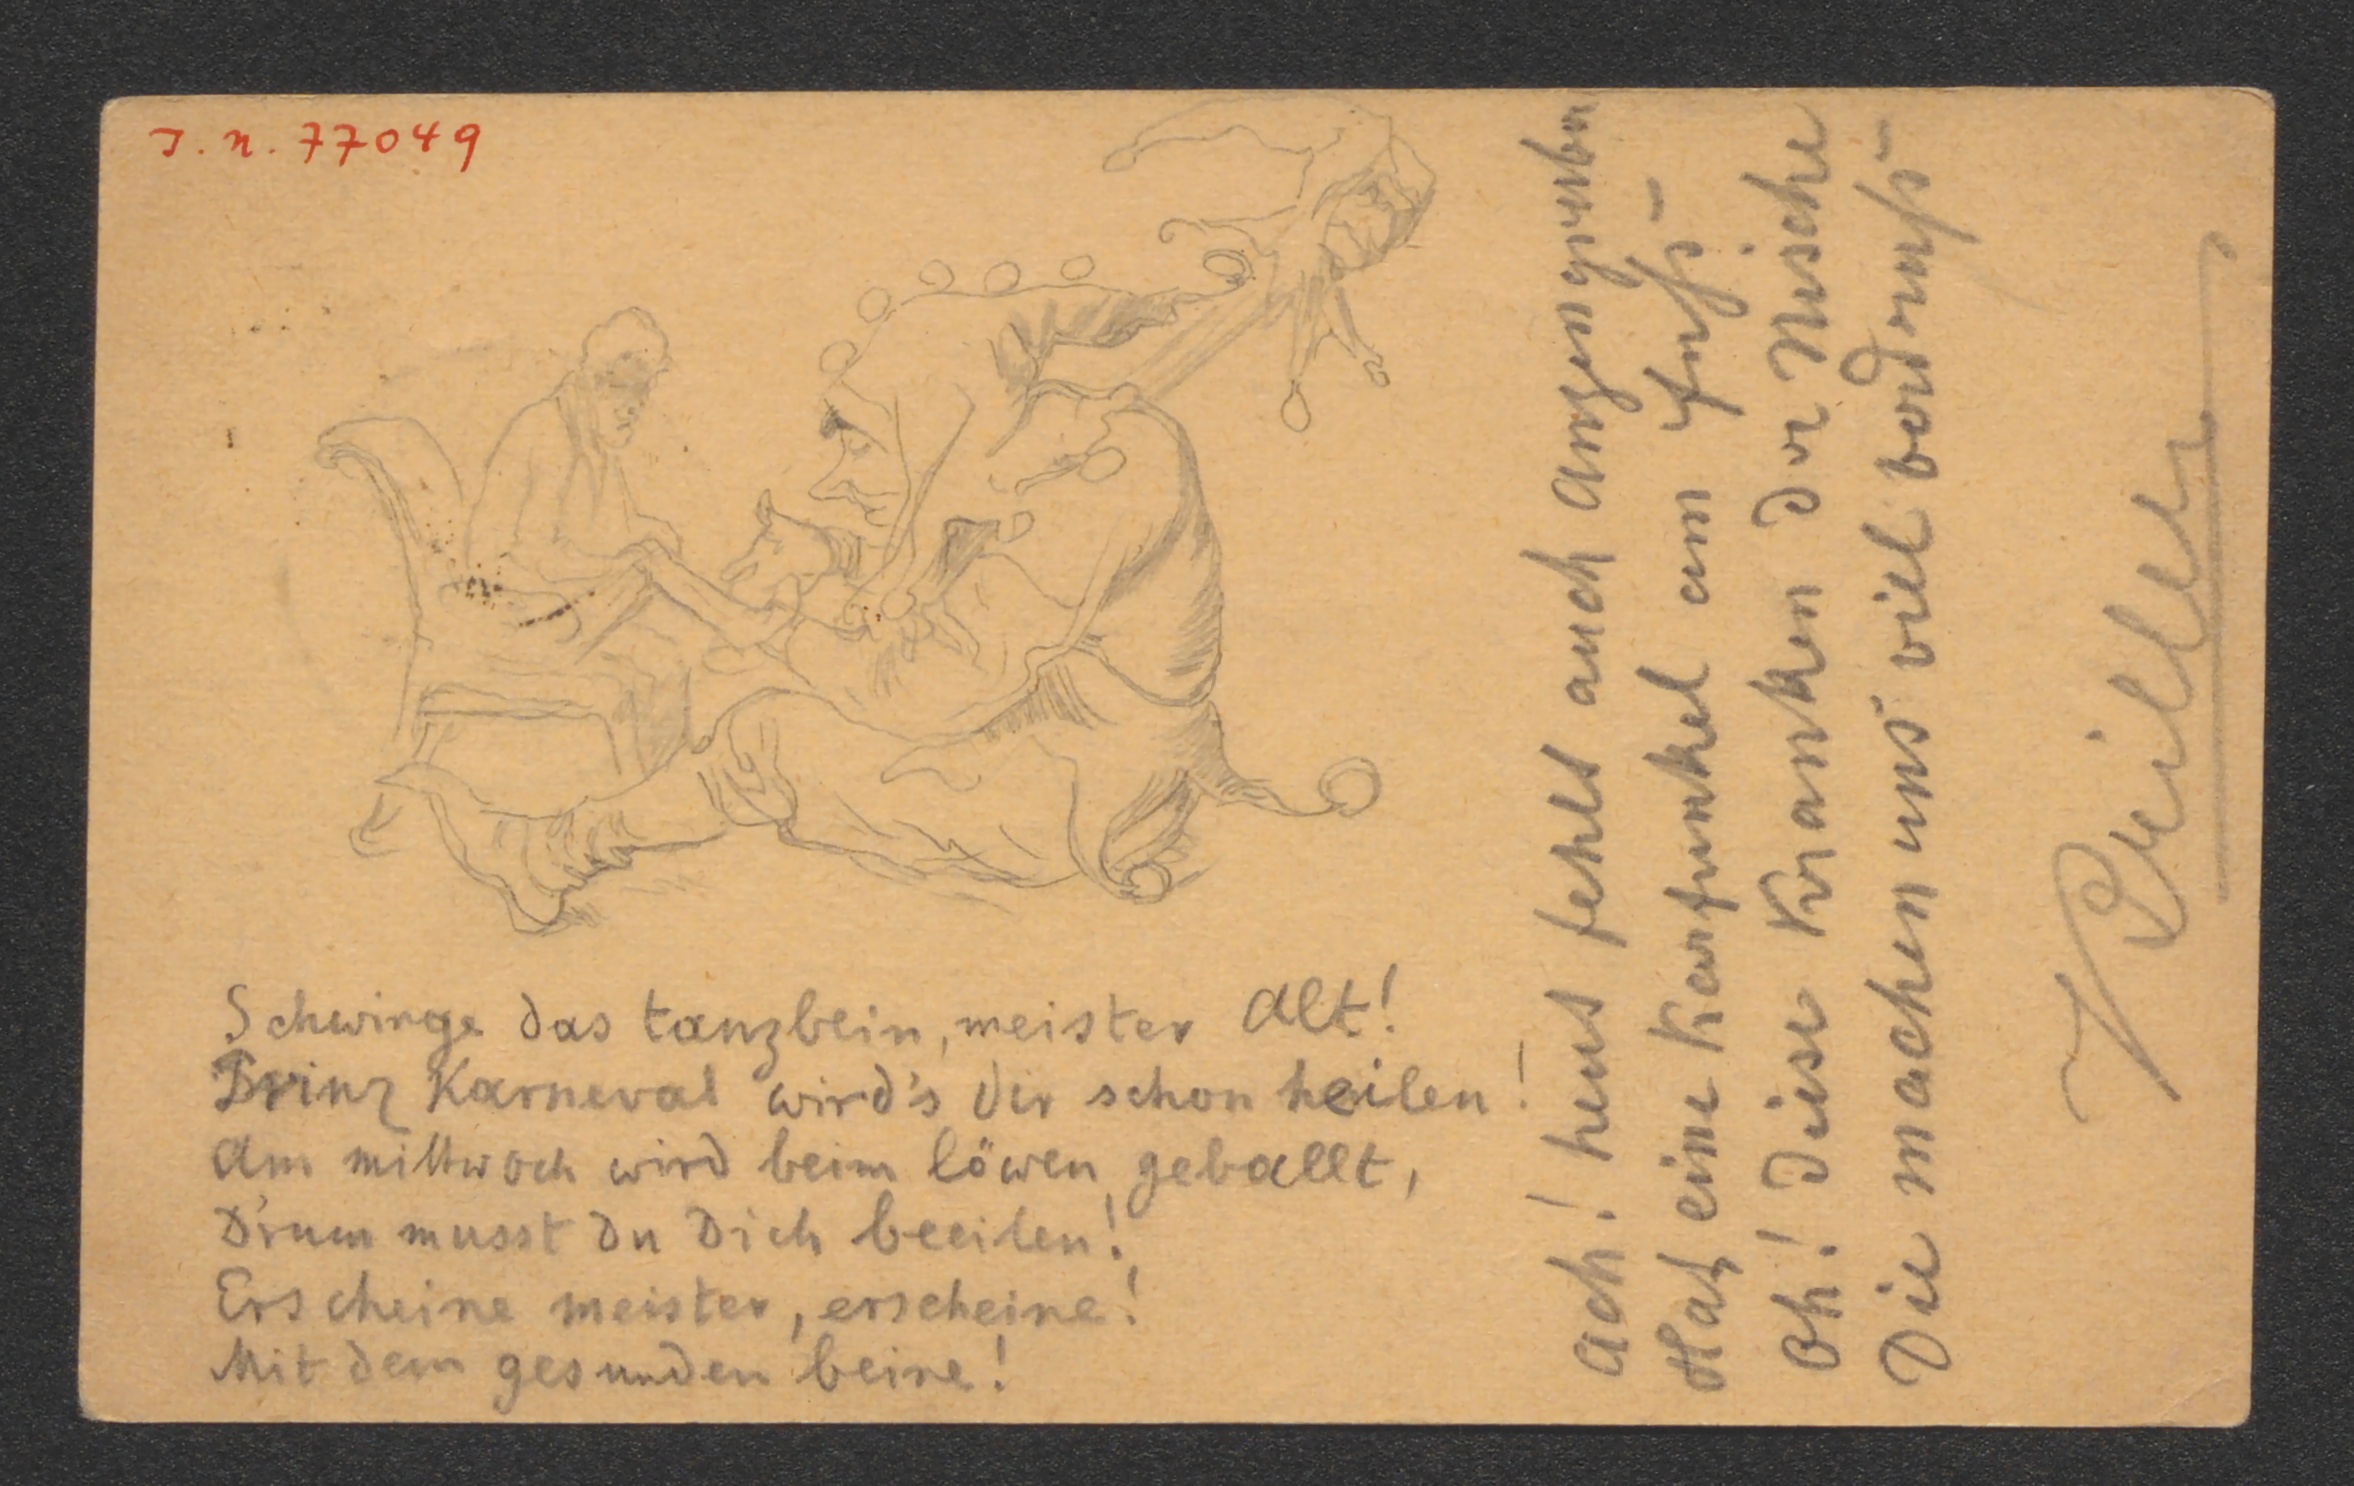 J. N. 77049
Schwinge das tanzbein, meister Alt!
Prinz Karneval wird's dir schon heilen!
Am mittwoch wird beim löwen geballt,
D'rum musst du Dich beeilen!
Erscheine meister, erscheine!
Mit dem gesunden beine!
Ach! heut fehlt auch
Hat eine Karfunkel am Fuß –
Oh! diese Kranken der Nische
Die machen uns viel Verdruß –